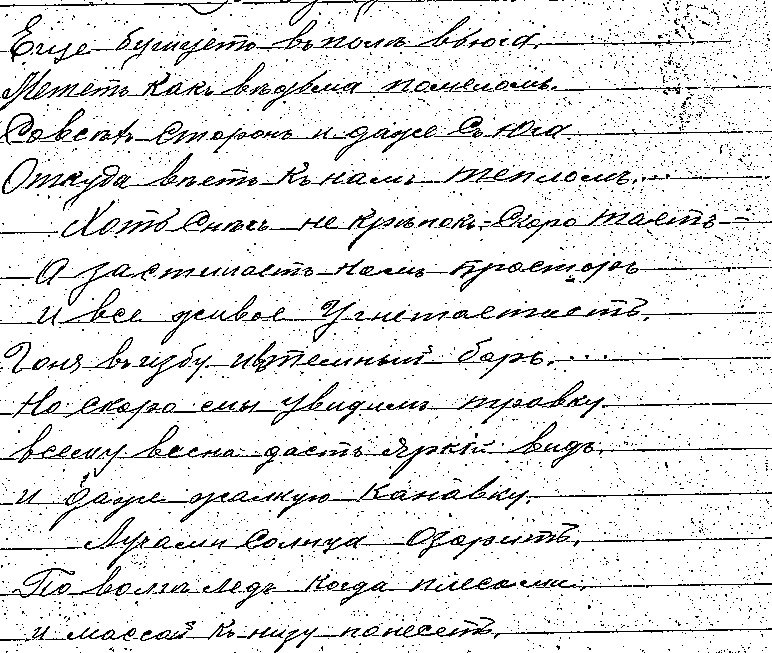 Еще бушуетъ въ поле вьюга.
Мететъ какъ вѣдьма помеломъ.
Со всѣхъ сторонъ и даже съ Юга
Откуда вѣетъ къ намъ тепломъ...
Хоть Снѣгъ не крѣпокъ,- Скоро таетъ -
А застилаетъ намъ просторъ
и все живое Угнетаетъ.
Гоня въ избу, и въ темный боръ. ...
Но скоро мы увидимъ травку
всему весна дастъ яркій видъ.
и даже жалкую канавку.
Лучами Солнца Озаритъ.
По волгѣ ледъ когда плесами.
и массой къ низу понесетъ.